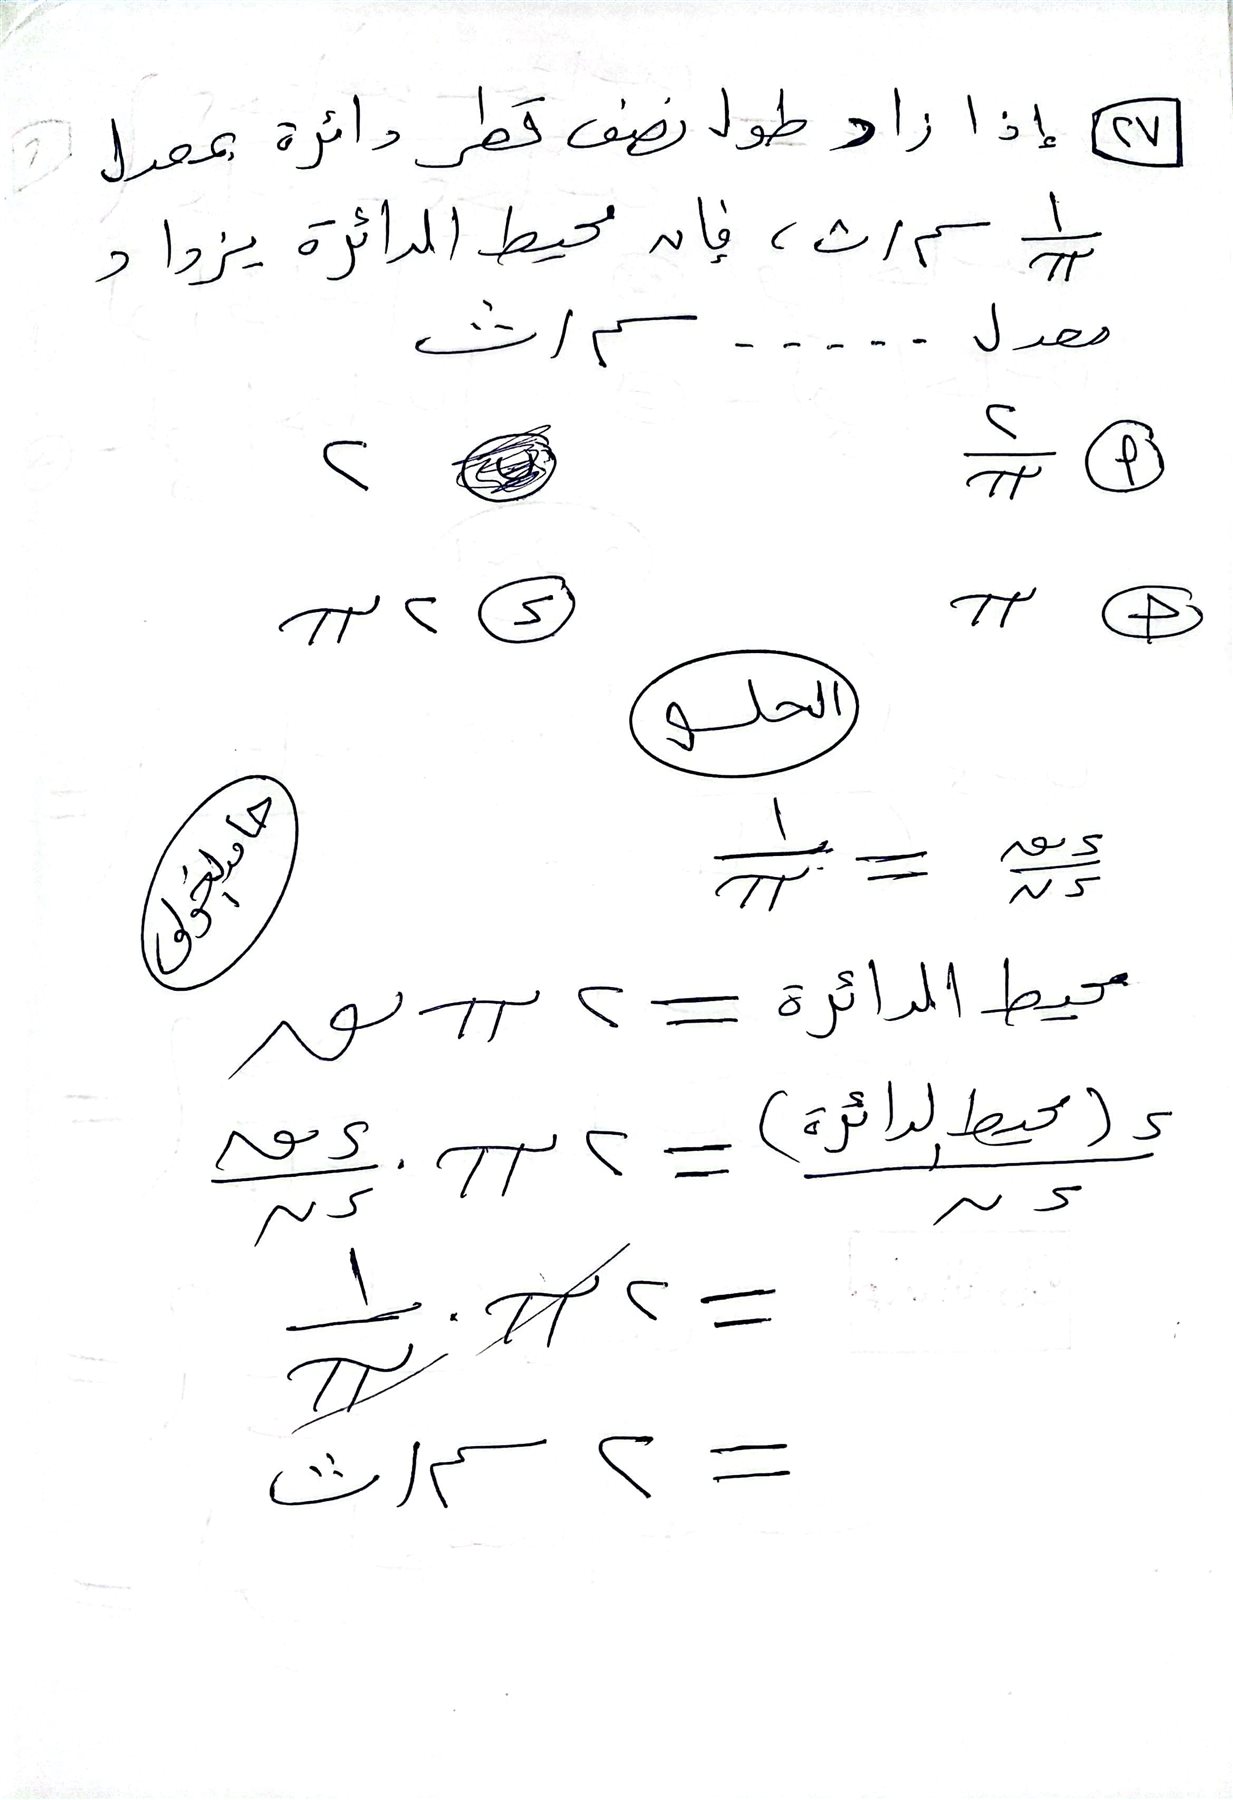 ٢٧ إذا زاد طول نصف قطر دائرة بمعدل
١/π سم/ث، فإن محيط الدائرة يزداد
بمعدل ..... سم/ث
أ ٢/π
ب ٢
ج π
د ٢π
الحلــو
د نق/د ن = ١/π
محيط الدائرة = ٢ π نق
د (محيط الدائرة)/د ن = ٢ π . د نق/د ن
= ٢ π . ١/π
= ٢ سم/ث